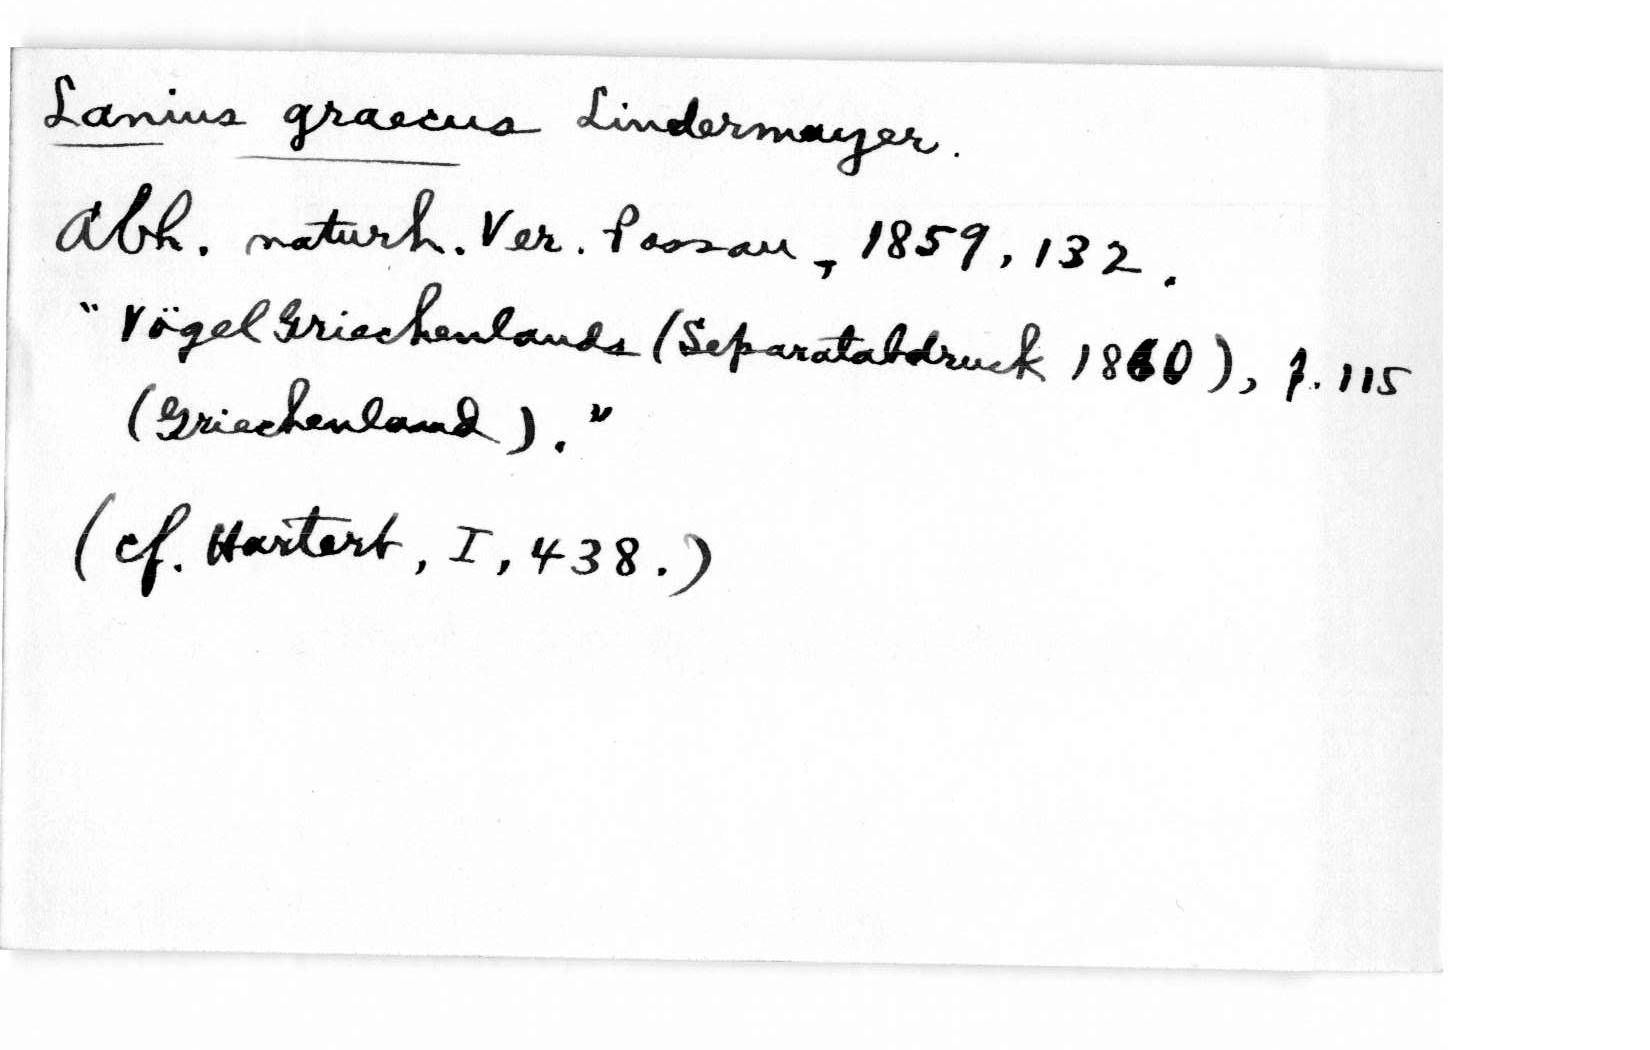 Lanius graecus Lindermayer.
Abh. naturh. Ver. Passau, 1859, 132.
"Vögel Griechenlands (Separatabdruck 1860), p. 115
(Griechenland)."
(cf. Hartert, I, 438.)